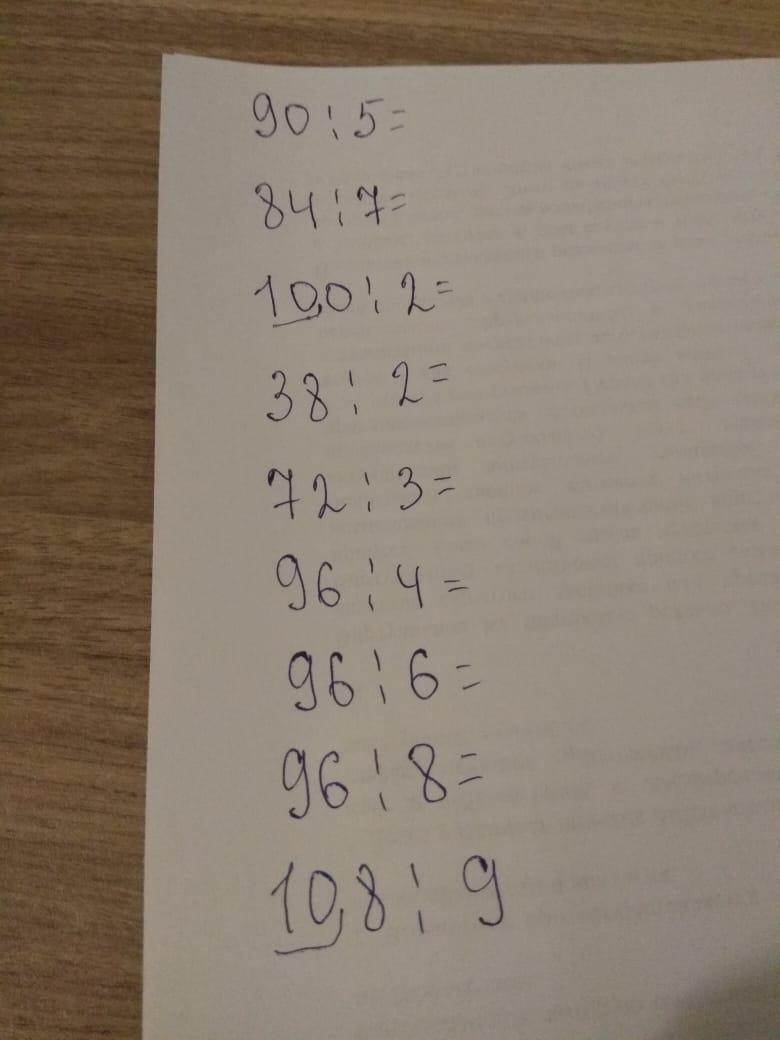 90:5=
84:7=
100:2=
38:2=
72:3=
96:4=
96:6=
96:8=
108:9